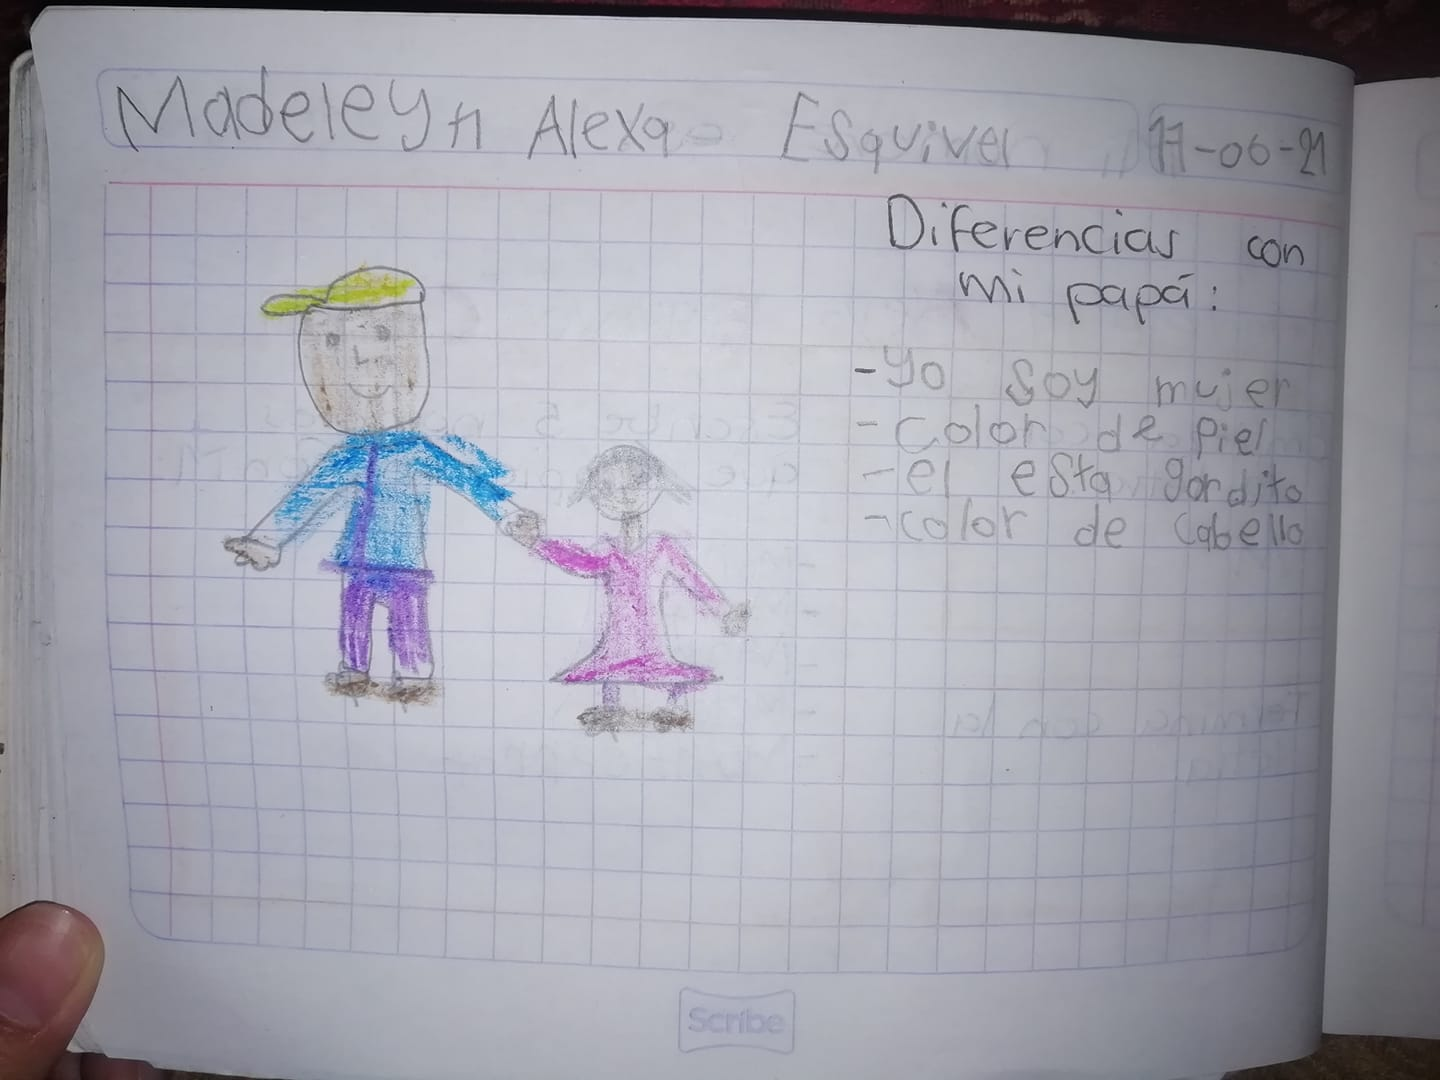 Madeleyn Alexa Esquivel 17-06-21
Diferencias con
mi papá:
-Yo soy mujer
-color de piel
-el esta gordito
-color de cabello
Scribe